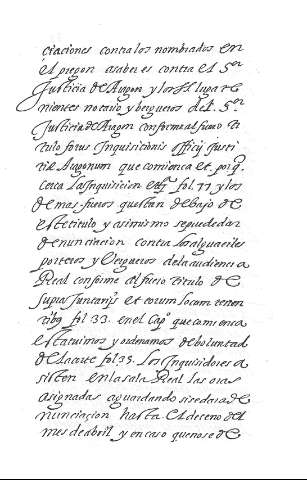 ciaciones contra los nombrados en
el pregon asaber es contra el S.or
Justicia de Aragon y los Ss. lugare
nientes notario y bergueros del S.or
Justicia de Aragon conforme al fuero ti
tulo forus Inquisicionis officij Justi
tiæ Aragonum que comienca et porq.
cerca la Inquisicion etc. fol. 77 y los
demas fueros questan debajo de
este titulo y asimismo sepuede dar
denunciacion contra los alguaciles
porteros y Vergueros dela audiencia
Real conforme al fuero titulo de
supras juntarijs et eorum locum tenen
tibus fol 33. en el Cap.o que comienca
estatuimos y ordenamos de boluntad
de la corte fol 35. Los Inquisidores a
sisten en la sala Real las oras
asignadas aguardando si se dara de
nunciaçion hasta el deceno del
mes de abril y en caso que no se de